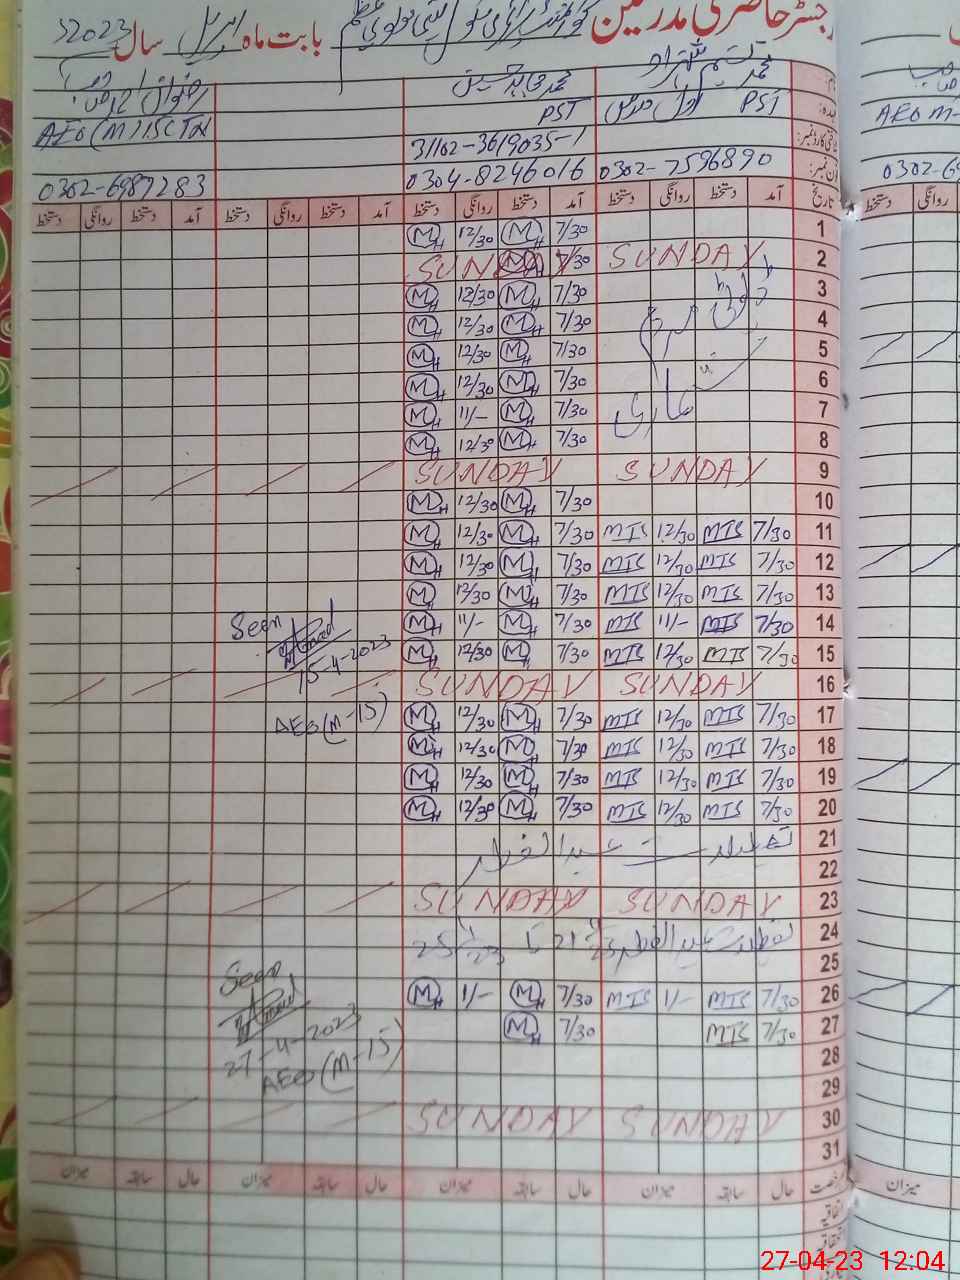 رجسٹر حاضری مدرسین
بابت ماہ اپریل سال 2023
نام:
محمد
PST
PST
AEO (M-15) CTN
31102-3619035-1
فون نمبر: 0302-7596890 0304-8246016 0302-6987283
تاریخ آمد دستخط روانگی دستخط آمد دستخط روانگی دستخط آمد دستخط روانگی دستخط آمد دستخط روانگی دستخط
1 7/30 MH 12/30 MH
2 SUNDAY 7/30 SUNDAY
3 7/30 MH 12/30 MH
4 7/30 MH 12/30 MH
5 7/30 MH 12/30 MH
6 7/30 MH 12/30 MH
7 7/30 MH 11/- MH
8 7/30 MH 12/30 MH
9 SUNDAY SUNDAY
10 7/30 MH 12/30 MH
11 7/30 MTS 12/30 MTS 7/30 MH 12/30 MH
12 7/30 MTS 12/30 MTS 7/30 MH 12/30 MH
13 7/30 MTS 12/30 MTS 7/30 MH 12/30 MH
14 7/30 MTS 11/- MTS 7/30 MH 11/- MH
Seen
15 7/30 MTS 12/30 MTS 7/30 MH 12/30 MH
15-4-2023
16 SUNDAY SUNDAY
17 7/30 MTS 12/30 MTS 7/30 MH 12/30 MH
AEO (M-15)
18 7/30 MTS 12/30 MTS 7/30 MH 12/30 MH
19 7/30 MTS 12/30 MTS 7/30 MH 12/30 MH
20 7/30 MTS 12/30 MTS 7/30 MH 12/30 MH
21 تعطیلات عید الفطر
22
23 SUNDAY SUNDAY
24 تعطیلات عید الفطر 21 تا 25
25
Seen
26 7/30 MTS 1/- MTS 7/30 MH 1/- MH
27 7/30 MTS 7/30 MH
27-4-2023
28
AEO (M-15)
29
30 SUNDAY SUNDAY
31
رخصت حال سابقہ میزان حال سابقہ میزان حال سابقہ میزان حال سابقہ میزان
اتفاقیہ
AEO M-
0302-69
روانگی دستخط
میزان
27-04-23 12:04